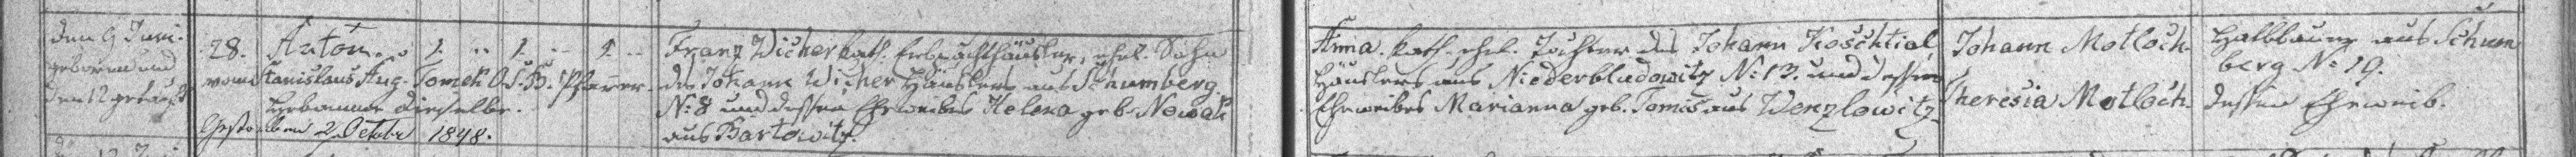 den 9 Juni.
geboren und
den 12 getauft
28. Anton. 1. 1. 1.
vom Stanislaus Aug. Tomek O.S.B. Pfarrer.
Hebamme dieselbe.
Gestorben 2 October 1848.
Franz Wicher kath. Erbpachthäusler, ehel. Sohn
des Johann Wicher Häuslers aus Schumberg
N: 8 und dessen Eheweibes Helena geb. Nowak
aus Bartowitz.
Anna. kath. ehel. Tochter des Johann Koschtial
Häuslers aus Niederbludowitz N: 13. und dessen
Eheweibes Marianna geb. Tomis aus Wenzlowitz
Johann Motloch.
Theresia Motloch.
Halbbauer aus Schum
berg N: 19.
dessen Eheweib.